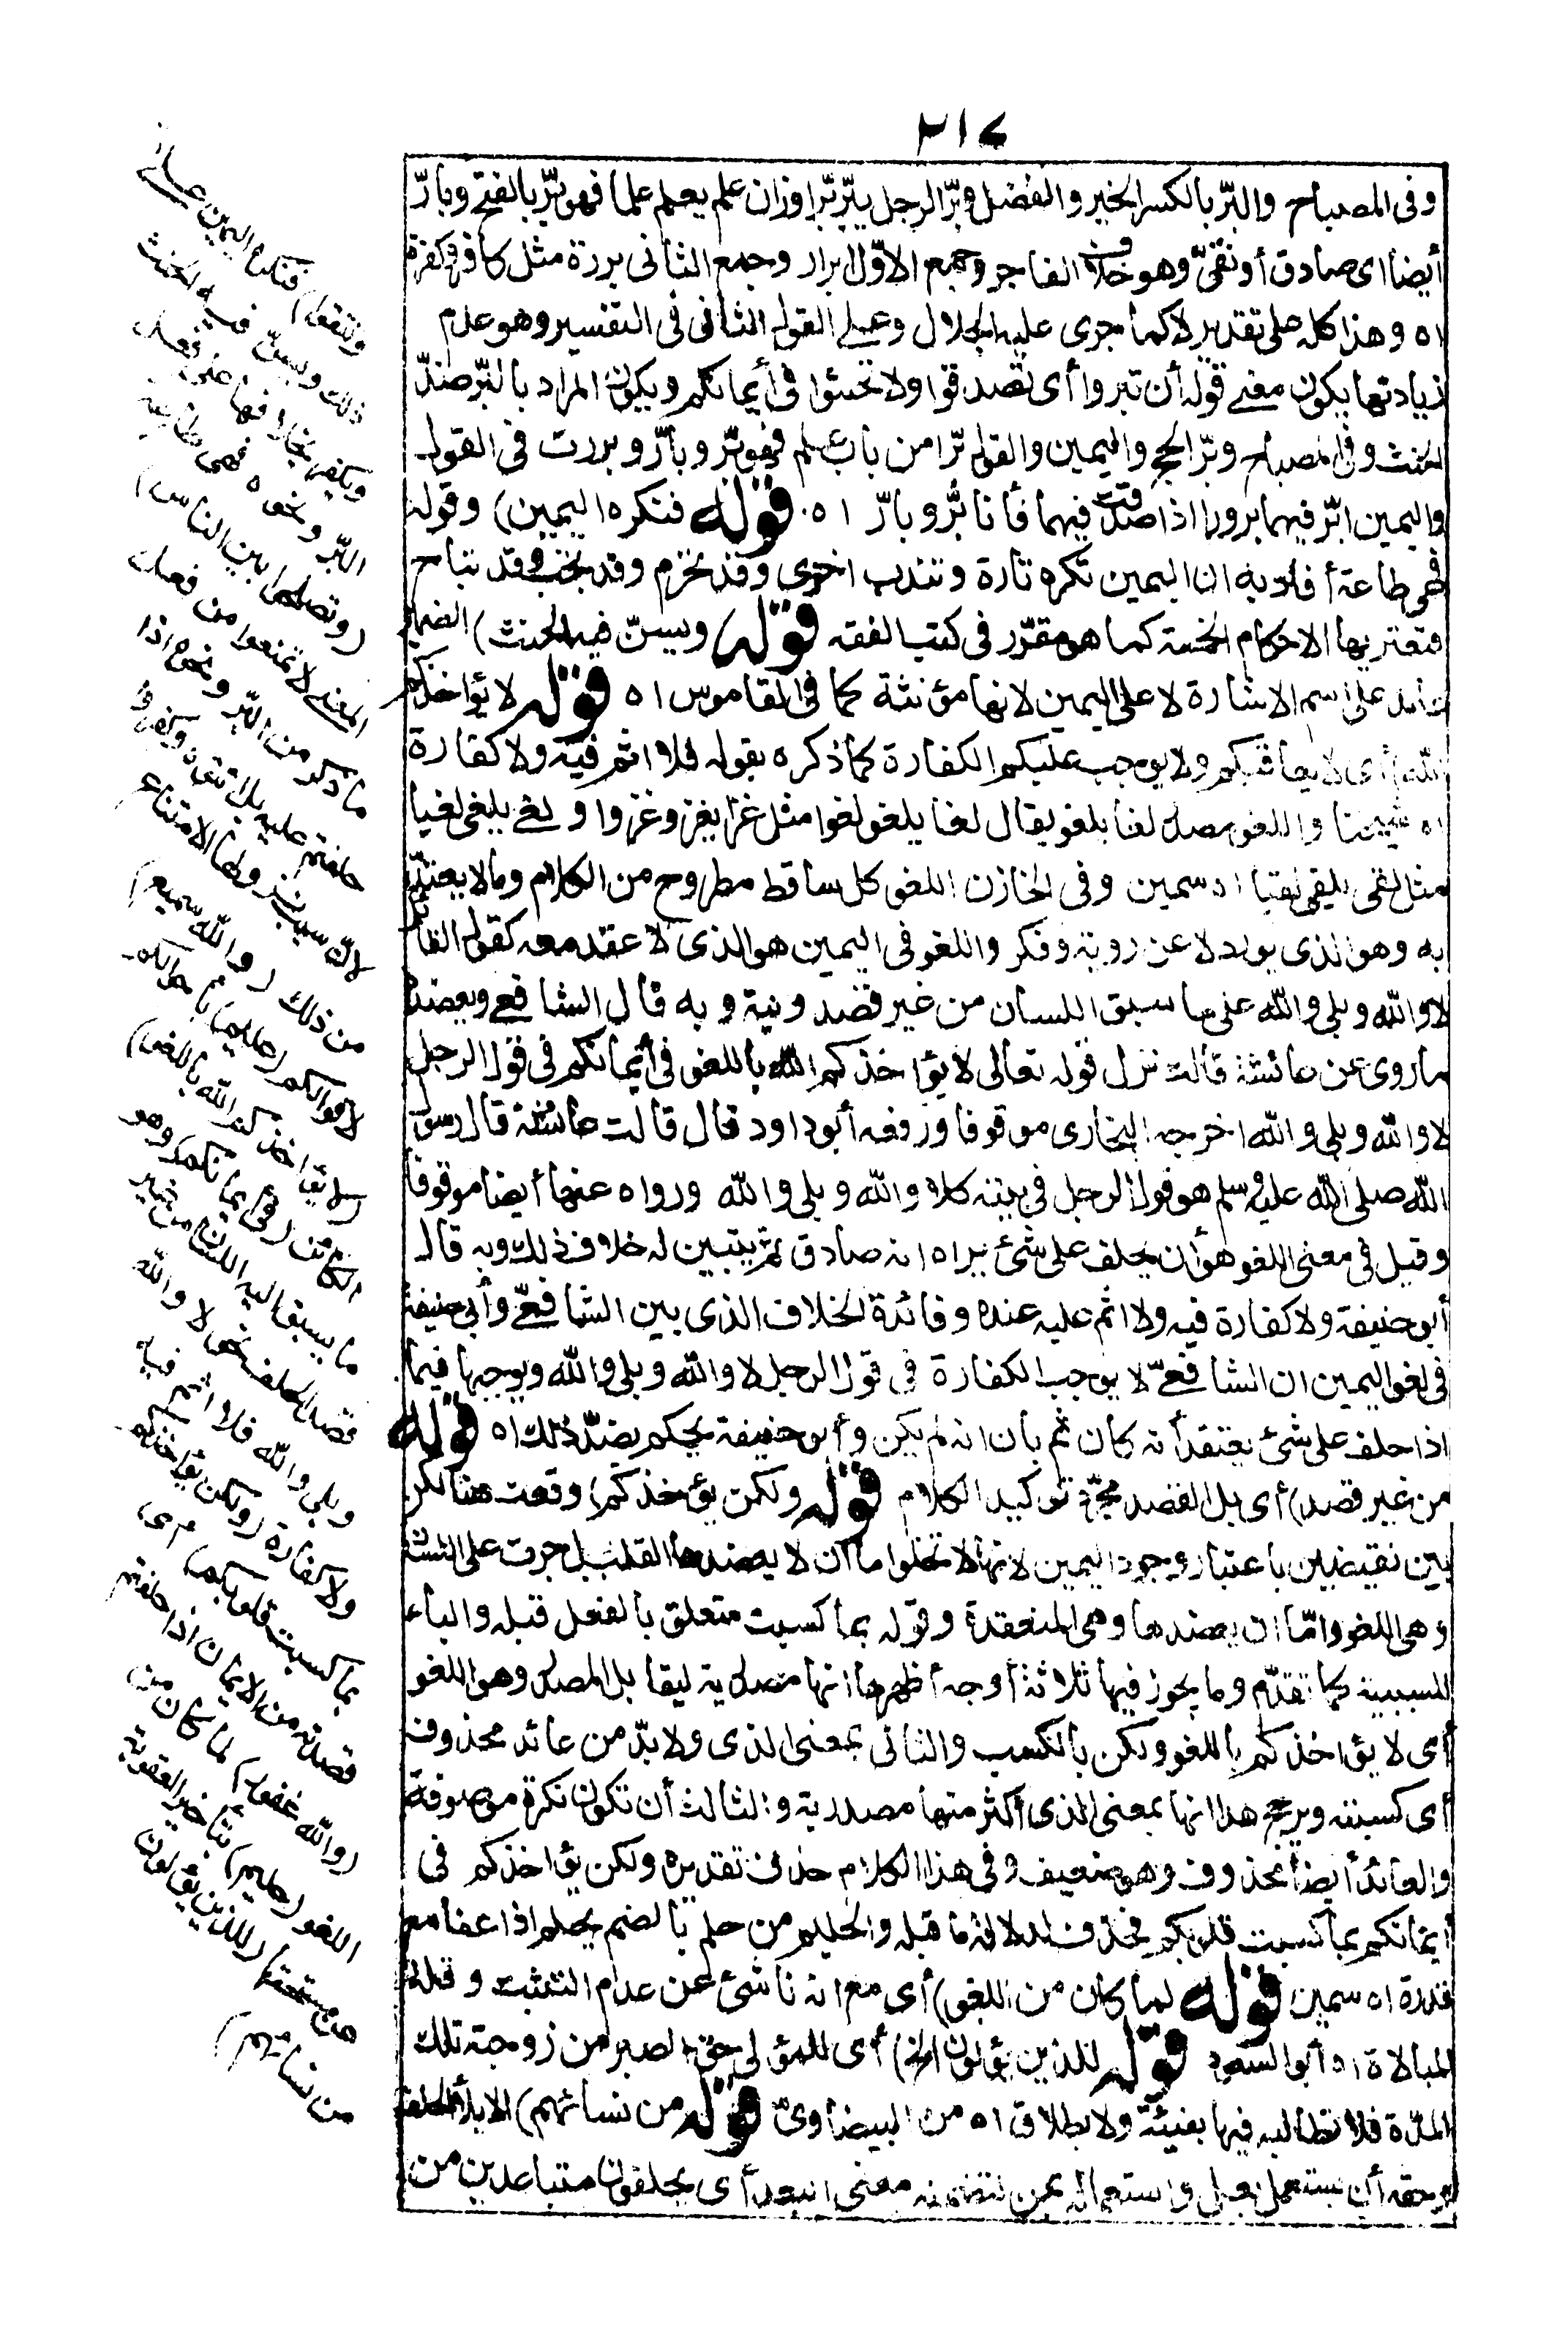 ٢١٧
وفى المصباح والبرّ بالكسر الخير والفضل وبرّ الرجل يبرّ برّا وزان علم يعلم علما فهو برّ بالفتح وبارّ
أيضا اى صادق أو تقىّ وهو خلاف الفاجر وجمع الاوّل ابرار وجمع الثانى بررة مثل كافر وكفرة
اه وهذا كله على تقدير لا كما جرى عليه الجلال وعلى القول الثانى فى التفسير وهو عدم
زيادتها يكون معنى قوله أن تبروا أى تصدقوا ولا تحنثوا فى أيمانكم ويكون المراد بالبرّ ضدّ
الحنث وفى المصباح وبرّ الحج واليمين والقول برّا من باب علم فهو برّ وبارّ وبررت فى القول
واليمين ابرّ فيهما برورا اذا صدقت فيهما فأنا برّ وبارّ اه قوله فتكره اليمين) وقوله
فهى طاعة أفاد به ان اليمين تكره تارة وتندب اخرى وقد تحرم وقد تجب وقد تباح
فتعتريها الاحكام الخمسة كما هو مقرّر فى كتب الفقه قوله ويسنّ فيه الحنث) الضمير
عائد على اسم الاشارة لا على اليمين لانها مؤنثة كما فى القاموس اه قوله لا يؤاخذكم
الله) أى لا يعاقبكم ولا يوجب عليكم الكفارة كما ذكره بقوله فلا اثم فيه ولا كفارة
اه شيخنا واللغو مصدر لغا يلغو يقال لغا يلغو لغوا مثل غزا يغزو غزوا ولغى يلغى لغيا
مثل لقى يلقى لقيا اه سمين وفى الخازن اللغو كل ساقط مطروح من الكلام وما لا يعتدّ
به وهو الذى يورد لا عن روية وفكر واللغو فى اليمين هو الذى لا عقد معه كقول القائل
لا والله وبلى والله على ما سبق اللسان من غير قصد ونية وبه قال الشافعى ويعضده
ما روى عن عائشة قالت نزل قوله تعالى لا يؤاخذكم الله باللغو فى أيمانكم فى قول الرجل
لا والله وبلى والله اخرجه البخارى موقوفا ورفعه أبو داود قال قالت عائشة قال رسول
الله صلى الله عليه وسلم هو قول الرجل فى بيته كلا والله وبلى والله ورواه عنها أيضا موقوفا
وقيل فى معنى اللغو هو أن يحلف على شئ يراه انه صادق ثم يتبين له خلاف ذلك وبه قال
أبو حنيفة ولا كفارة فيه ولا اثم عليه عنده وفائدة الخلاف الذى بين الشافعىّ وأبى حنيفة
فى لغو اليمين ان الشافعىّ لا يوجب الكفارة فى قول الرجل لا والله وبلى والله ويوجبها فيما
اذا حلف على شئ يعتقد أنه كان ثم بان انه لم يكن وأبو حنيفة يحكم بضدّ ذلك اه قوله
من غير قصد) أى بل القصد مجرّد توكيد الكلام قوله ولكن يؤاخذكم) وقعت هنا لكن
بين نقيضين باعتبار وجود اليمين لانها لا تخلوا ما أن لا يقصدها القلب بل جرت على اللسان
وهى اللغو وامّا ان يقصدها وهى المنعقدة وقوله بما كسبت متعلق بالفعل قبله والباء
للسببية كما تقدّم وما يجوز فيها ثلاثة أوجه أظهرها انها مصدرية ليقابل المصدر وهو اللغو
أى لا يؤاخذكم باللغو ولكن بالكسب والثانى بمعنى الذى ولا بدّ من عائد محذوف
أى كسبته ويرجح هذا انها بمعنى الذى أكثر منها مصدرية والثالث أن تكون نكرة موصوفة
والعائد أيضا محذوف وهو ضعيف وفى هذا الكلام حذف تقديره ولكن يؤاخذكم فى
أيمانكم بما كسبت قلوبكم فحذف لدلالة ما قبله والحليم من حلم بالضم يحلم اذا عفا مع
قدرة اه سمين قوله لما كان من اللغو) أى مع انه ناشئ عن عدم التثبت وقلة
المبالاة اه أبو السعود قوله للذين يؤلون الخ) أى للمؤلى حق الصبر من زوجته تلك
المدّة فلا تطالبه فيها بفيئة ولا بطلاق اه من البيضاوىّ قوله من نسائهم) الايلاء الحلف
وحقه أن يستعمل بعلى واستعماله بمن لتضمنه معنى البعد أى يحلفون متباعدين من
وتتقوا) فتكره اليمين على
ذلك ويسنّ فيه الحنث
ويكفر بخلافها على فعل
البرّ ونحوه فهى طاعة
(وتصلحوا بين الناس)
المعنى لا تمتنعوا من فعل
ما ذكر من البرّ ونحوه اذا
حلفتم عليه بل ائتوه وكفروا
لانّ سبب نزولها الامتناع
من ذلك (والله سميع)
لاقوالكم (عليم) باحوالكم
(لا يؤاخذكم الله باللغو)
الكائن (فى أيمانكم) وهو
ما يسبق اليه اللسان من غير
قصد الحلف نحو لا والله
وبلى والله فلا اثم فيه
ولا كفارة (ولكن يؤاخذكم
بما كسبت قلوبكم) أى
قصدته من الايمان اذا حلفتم
(والله غفور) لما كان من
اللغو (حليم) بتأخير العقوبة
عن مستحقها (للذين يؤلون
من نسائهم)